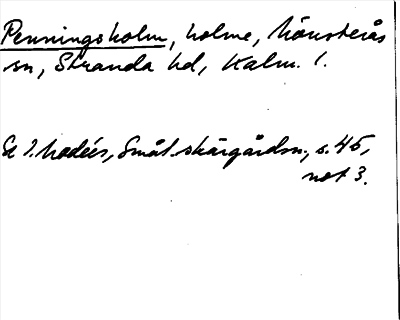 Penningsholm, holme, Mönsterås
sn, Stranda hd, Kalm. l.
Se I. Modéer, Smål. skärgårdsn., s. 45,
not 3.